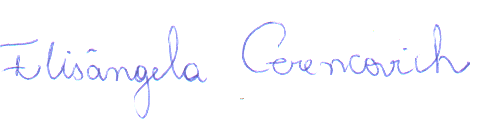 Elisângela Cerencovich